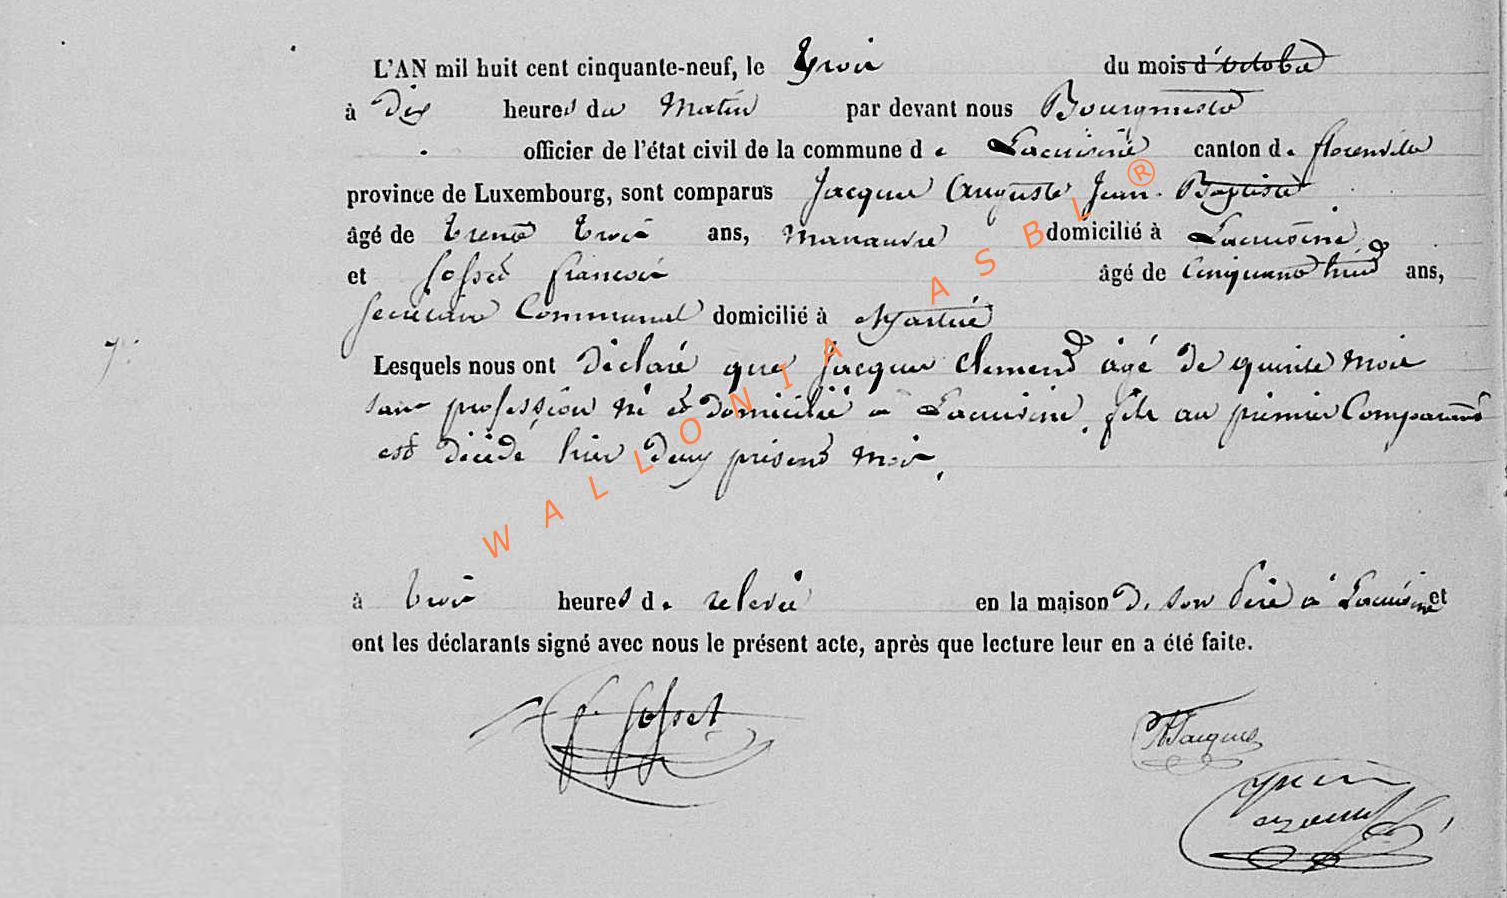 L'AN mil huit cent cinquante-neuf, le trois du mois d'octobre
à dix heures du matin par devant nous Bourgmestre
officier de l'état civil de la commune de Lacuisine canton de florenville
province de Luxembourg, sont comparus Jacques Auguste Jean Baptiste
âgé de trente trois ans, manœuvre domicilié à Lacuisine
et Gosset françois âgé de cinquante huit ans,
secrétaire Communal domicilié à Martué
Lesquels nous ont déclaré que Jacques Clement âgé de quinze mois
sans profession né et domicilié à Lacuisine, fils au premier Comparant
est décédé hier deux présent mois,
à trois heures de relevée en la maison de son père à Lacuisine et
ont les déclarants signé avec nous le présent acte, après que lecture leur en a été faite.
f. Gosset
Jacques
WALLONIA ASBL®